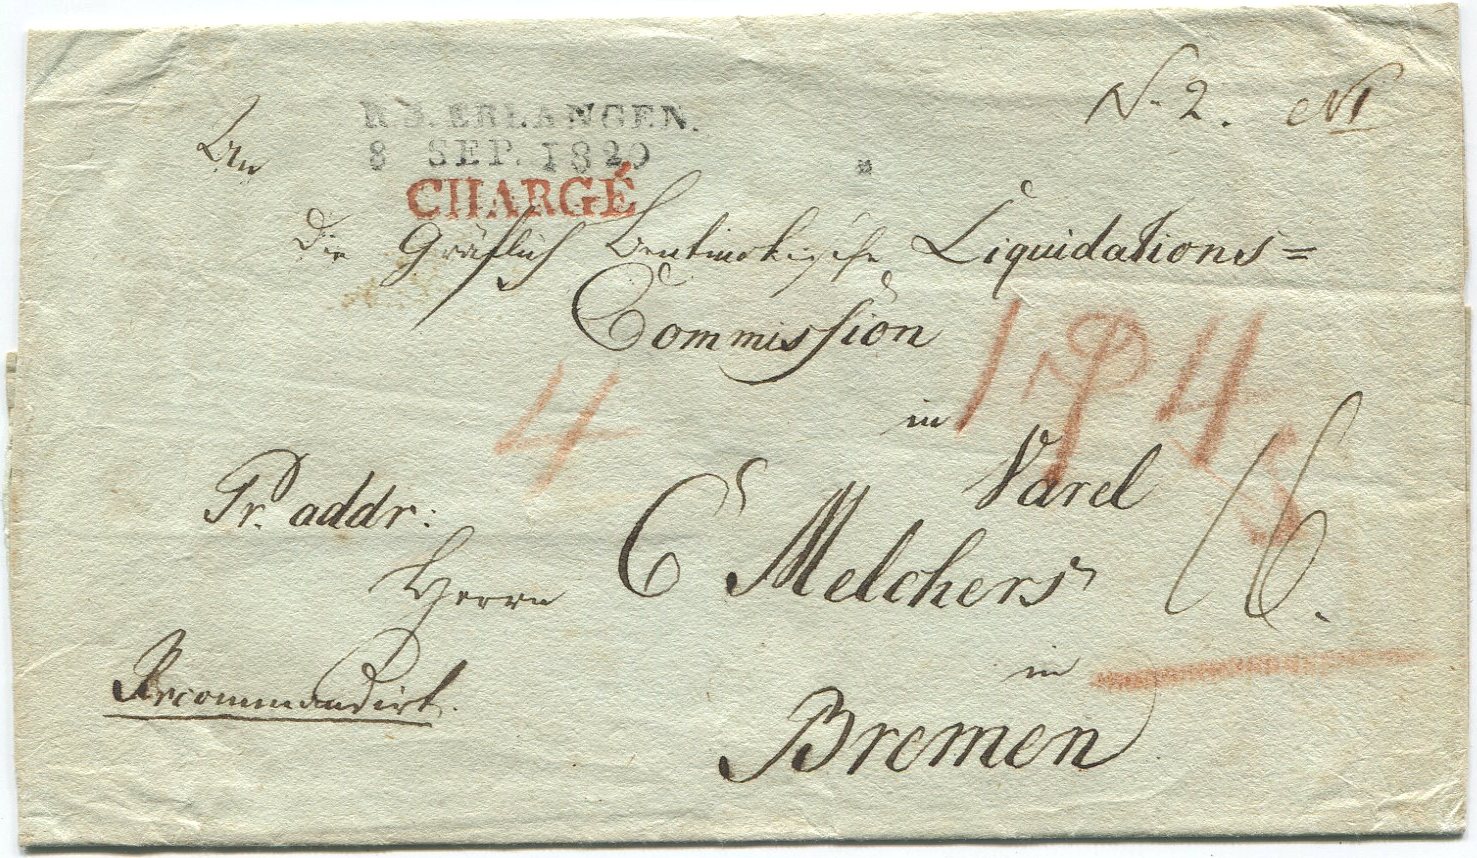 N. 2.
R. 3. ERLANGEN.
8 SEP. 1820
CHARGÉ
An
Die Gräflich Bentinckische Liquidations=
Commission
in
Varel
4
Pr. addr:
Herrn C Melchers
16.
Recommandirt.
in
Bremen